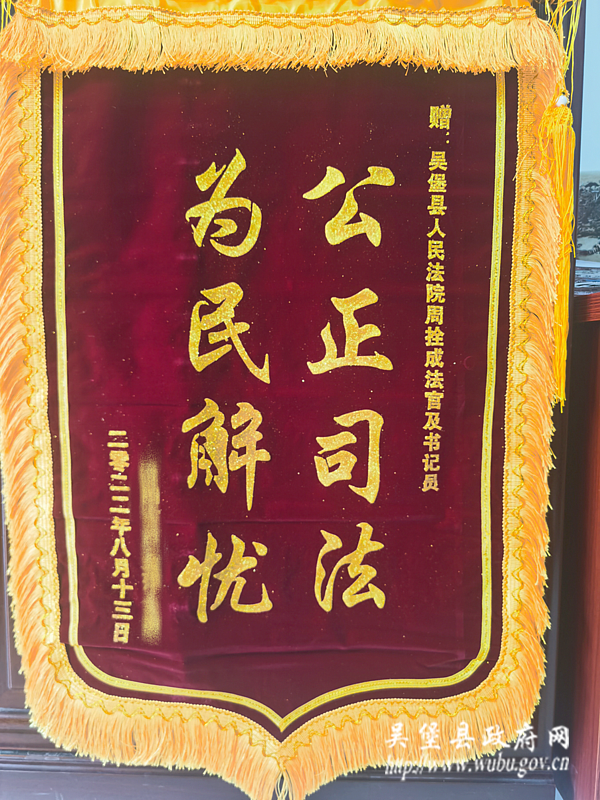 赠：吴堡县人民法院周拴成法官及书记员
公正司法
为民解忧
二零二二年八月十三日
吴堡县政府网
http://www.wubu.gov.cn